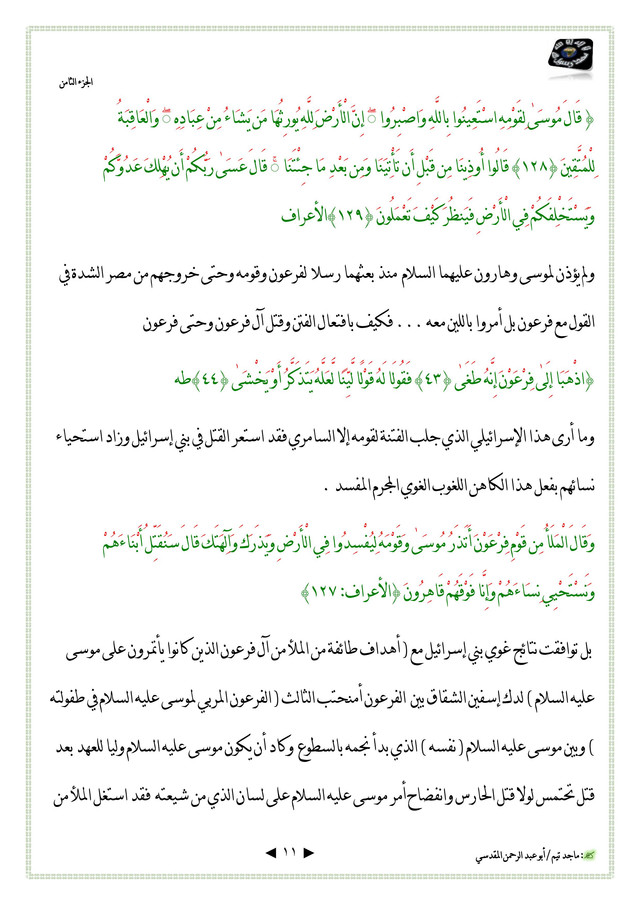 الجزء الثامن
﴿ قَالَ مُوسَىٰ لِقَوْمِهِ اسْتَعِينُوا بِاللَّهِ وَاصْبِرُوا ۖ إِنَّ الْأَرْضَ لِلَّهِ يُورِثُهَا مَن يَشَاءُ مِنْ عِبَادِهِ ۖ وَالْعَاقِبَةُ
لِلْمُتَّقِينَ ﴿١٢٨﴾ قَالُوا أُوذِينَا مِن قَبْلِ أَن تَأْتِيَنَا وَمِن بَعْدِ مَا جِئْتَنَا ۚ قَالَ عَسَىٰ رَبُّكُمْ أَن يُهْلِكَ عَدُوَّكُمْ
وَيَسْتَخْلِفَكُمْ فِي الْأَرْضِ فَيَنظُرَ كَيْفَ تَعْمَلُونَ ﴿١٢٩﴾ الأعراف
ولم يؤذن لموسى وهارون عليهما السلام منذ بعثهما رسلا لفرعون وقومه وحتى خروجهم من مصر الشدة في
القول مع فرعون بل أمروا باللين معه ... فكيف بافتعال الفتن وقتل آل فرعون وحتى فرعون
﴿اذْهَبَا إِلَىٰ فِرْعَوْنَ إِنَّهُ طَغَىٰ ﴿٤٣﴾ فَقُولَا لَهُ قَوْلًا لَّيِّنًا لَّعَلَّهُ يَتَذَكَّرُ أَوْ يَخْشَىٰ ﴿٤٤﴾ طه
وما أرى هذا الإسرائيلي الذي جلب الفتنة لقومه إلا السامري فقد استعر القتل في بني إسرائيل وزاد استحياء
نسائهم بفعل هذا الكاهن اللغوب الغوي المجرم المفسد .
وَقَالَ الْمَلَأُ مِن قَوْمِ فِرْعَوْنَ أَتَذَرُ مُوسَىٰ وَقَوْمَهُ لِيُفْسِدُوا فِي الْأَرْضِ وَيَذَرَكَ وَآلِهَتَكَ قَالَ سَنُقَتِّلُ أَبْنَاءَهُمْ
وَنَسْتَحْيِي نِسَاءَهُمْ وَإِنَّا فَوْقَهُمْ قَاهِرُونَ ﴿الأعراف: ١٢٧﴾
بل توافقت نتائج غوي بني إسرائيل مع ( أهداف طائفة من الملأ من آل فرعون الذين كانوا يأتمرون على موسى
عليه السلام ) لدك إسفين الشقاق بين الفرعون أمنحتب الثالث ( الفرعون المربي لموسى عليه السلام في طفولته
) وبين موسى عليه السلام ( نفسه ) الذي بدأ نجمه بالسطوع وكاد أن يكون موسى عليه السلام وليا للعهد بعد
قتل تحتمس لولا قتل الحارس وانفضاح أمر موسى عليه السلام على لسان الذي من شيعته فقد استغل الملأ من
: ماجد تيم / أبو عبد الرحمن المقدسي
◄ ١١ ►